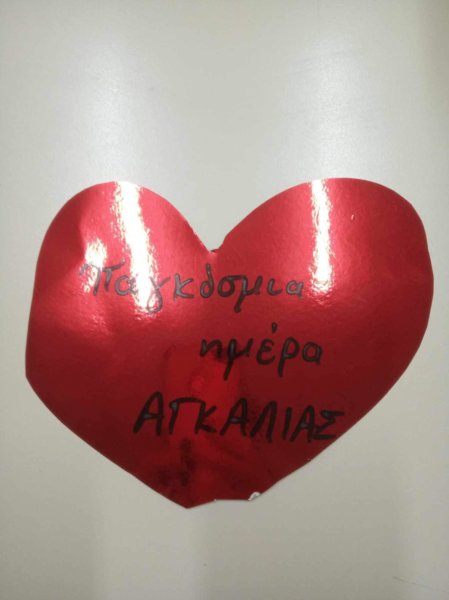 παγκόσμια
ημέρα
ΑΓΚΑΛΙΑΣ